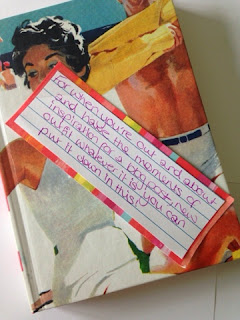 For when you're out and about
and have the moments of
inspiration for a blog post, new
outfit whatever it is, you can
put it down in this!